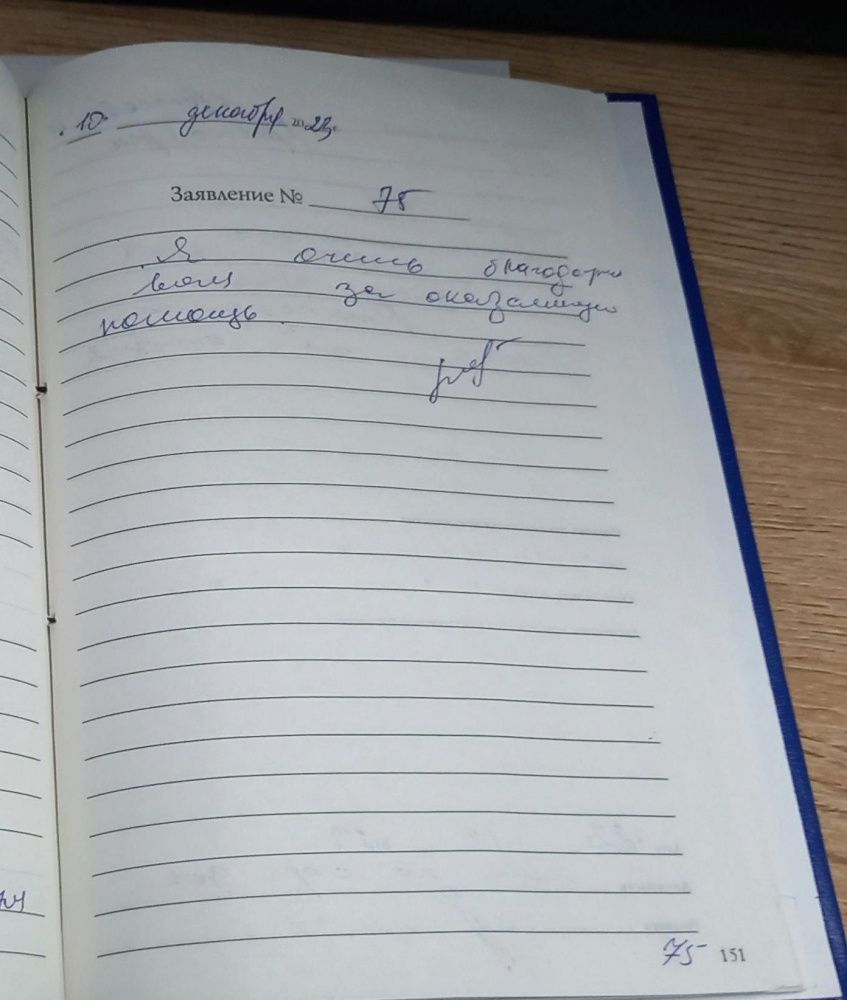 "10" декабря 20 23г.
Заявление № 75
Я очень благодарна
вам за оказанную
помощь.
75 151